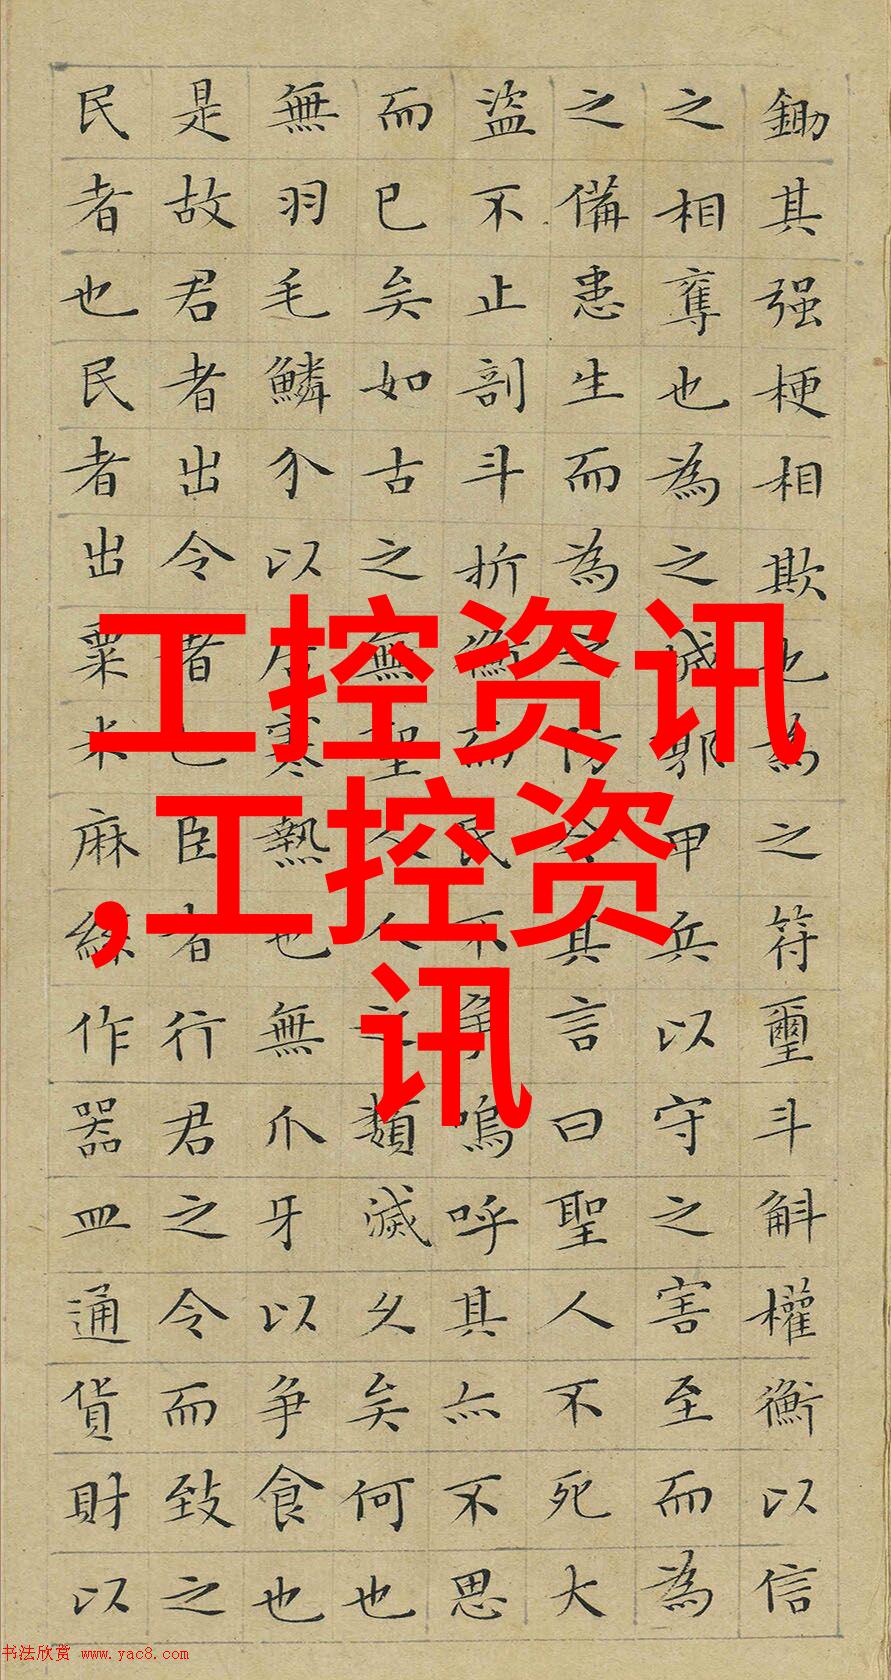 鋤其强梗相欺也為之符璽斗斛權衡以信
之相奪也為之城郭甲兵以守之害至而為
之備患生而為之防今其言曰聖人不死大
盜不止剖斗折衡而民不爭嗚呼其亦不思
而已矣如古之無聖人人之類滅久矣何也
無羽毛鱗介以居寒熱也無爪牙以争食也
是故君者出令者也臣者行君之令而致之
民者也民者出粟米麻絲作器皿通貨財以
工控资讯
,工控资
讯
书法欣赏 www.yac8.com